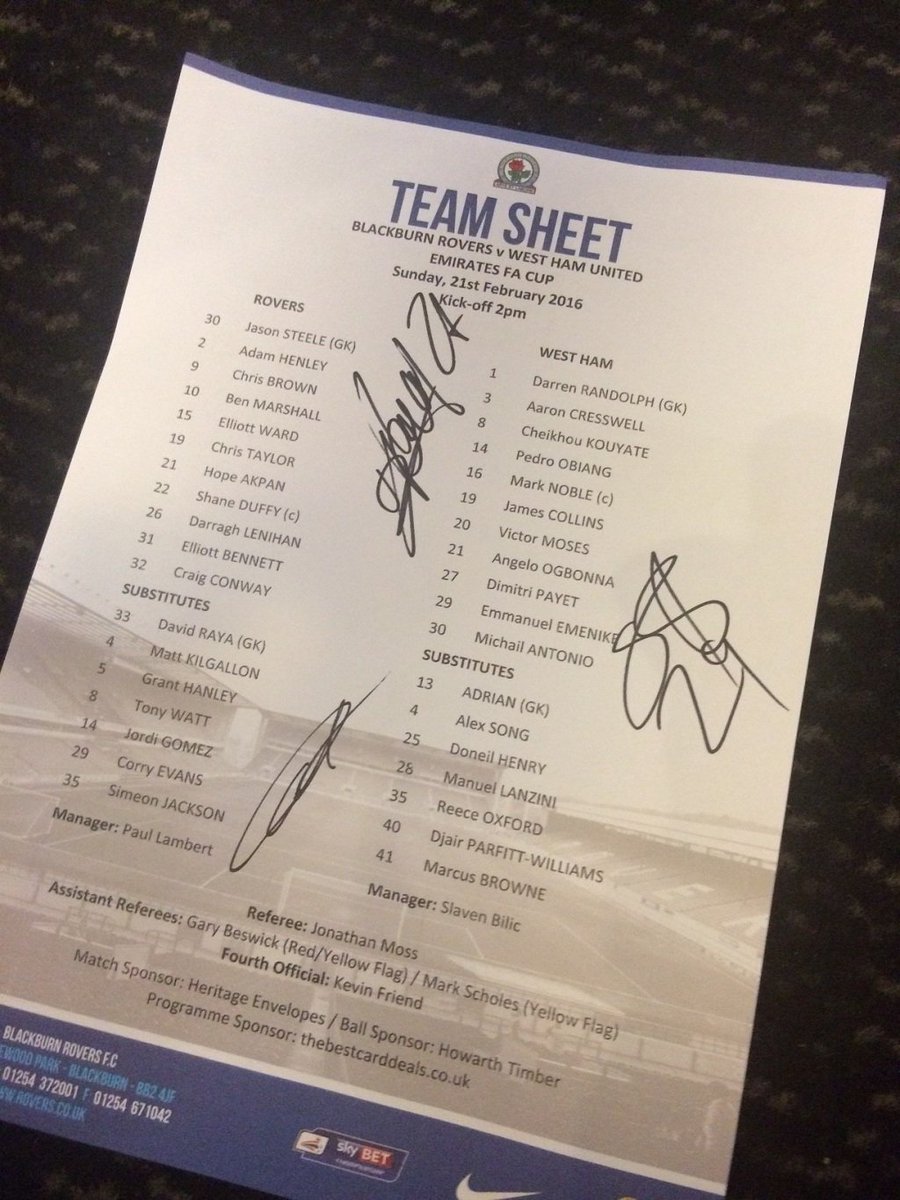 TEAM SHEET
BLACKBURN ROVERS v WEST HAM UNITED
EMIRATES FA CUP
Sunday, 21st February 2016
Kick-off 2pm
ROVERS
30 Jason STEELE (GK)
2 Adam HENLEY
9 Chris BROWN
10 Ben MARSHALL
15 Elliott WARD
19 Chris TAYLOR
21 Hope AKPAN
22 Shane DUFFY (c)
26 Darragh LENIHAN
31 Elliott BENNETT
32 Craig CONWAY
SUBSTITUTES
33 David RAYA (GK)
4 Matt KILGALLON
5 Grant HANLEY
8 Tony WATT
14 Jordi GOMEZ
29 Corry EVANS
35 Simeon JACKSON
Manager: Paul Lambert
WEST HAM
1 Darren RANDOLPH (GK)
3 Aaron CRESSWELL
8 Cheikhou KOUYATE
14 Pedro OBIANG
16 Mark NOBLE (c)
19 James COLLINS
20 Victor MOSES
21 Angelo OGBONNA
27 Dimitri PAYET
29 Emmanuel EMENIKE
30 Michail ANTONIO
SUBSTITUTES
13 ADRIAN (GK)
4 Alex SONG
25 Doneil HENRY
28 Manuel LANZINI
35 Reece OXFORD
40 Djair PARFITT-WILLIAMS
41 Marcus BROWNE
Manager: Slaven Bilic
Referee: Jonathan Moss
Assistant Referees: Gary Beswick (Red/Yellow Flag) / Mark Scholes (Yellow Flag)
Fourth Official: Kevin Friend
Match Sponsor: Heritage Envelopes / Ball Sponsor: Howarth Timber
Programme Sponsor: thebestcarddeals.co.uk
BLACKBURN ROVERS F.C
EWOOD PARK - BLACKBURN - BB2 4JF
01254 372001 F 01254 671042
WWW.ROVERS.CO.UK
sky BET